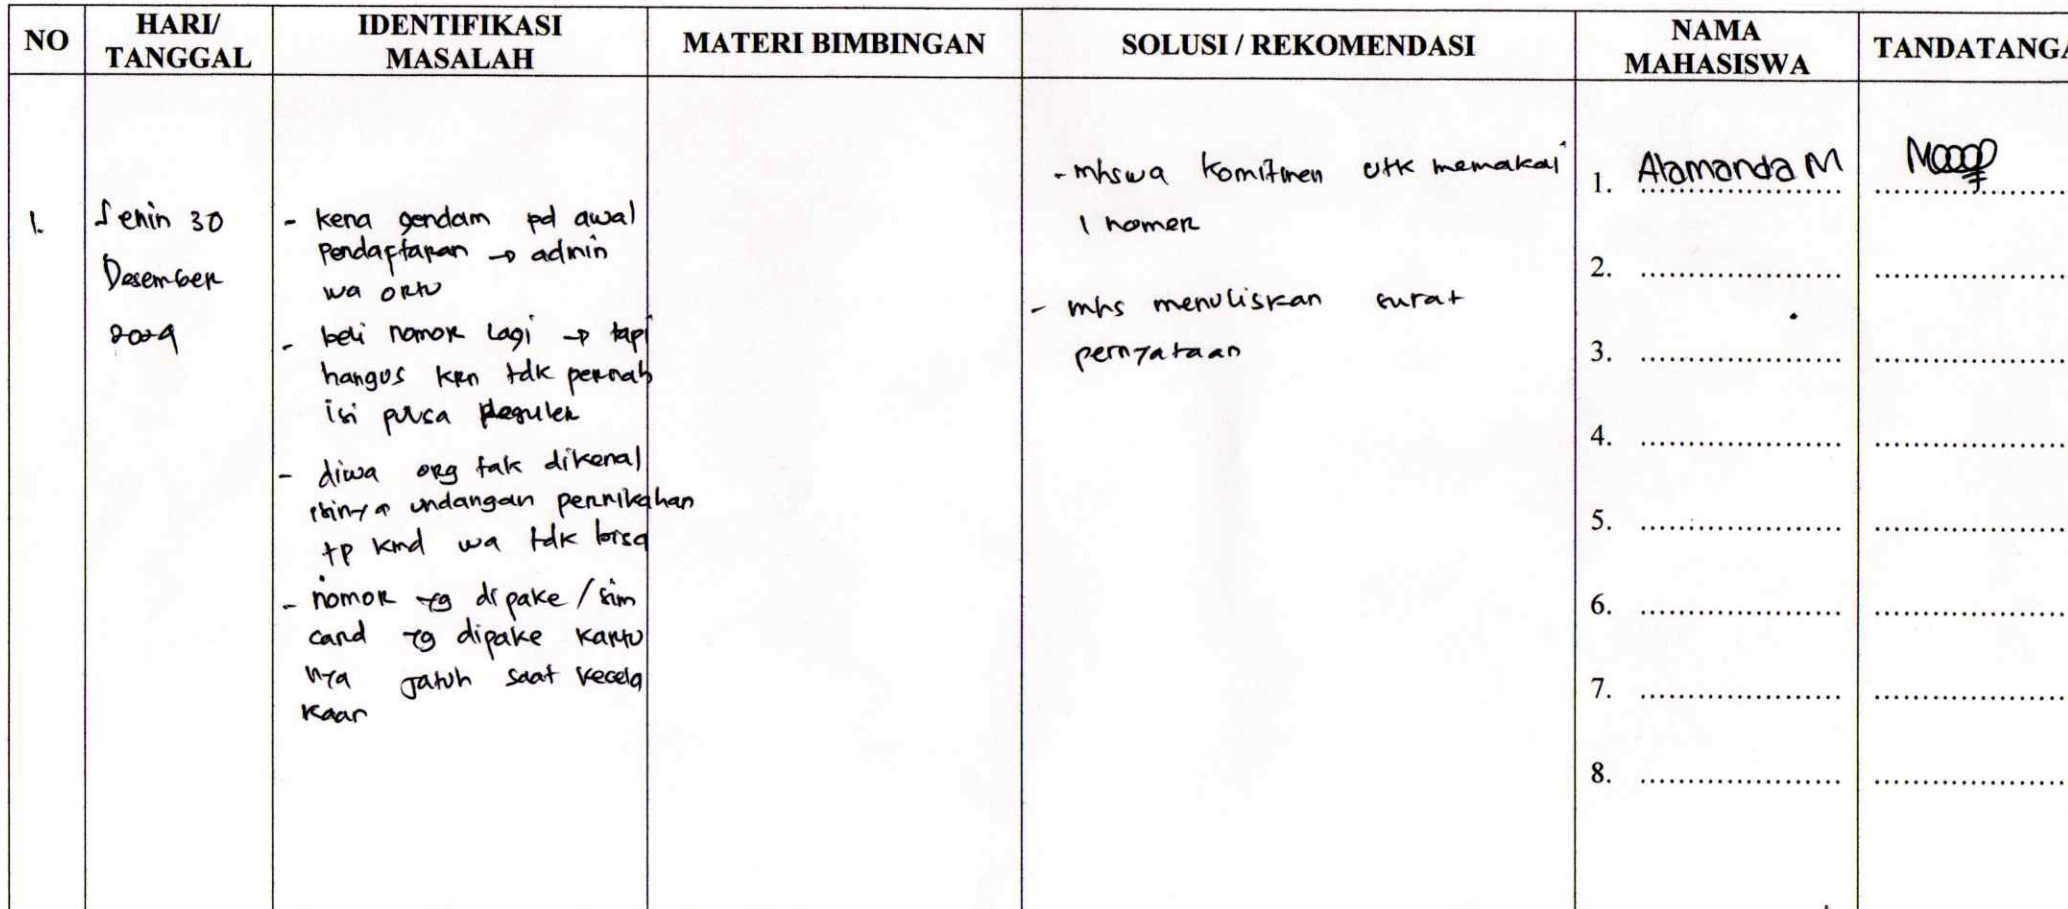 NO
HARI/
TANGGAL
IDENTIFIKASI
MASALAH
MATERI BIMBINGAN
SOLUSI / REKOMENDASI
NAMA
MAHASISWA
TANDATANGA
1.
Senin 30
Desember
2024
- kena gendam pd awal
pendaftaran → admin
wa ortu
- beli nomor lagi → tapi
hangus krn tdk pernah
isi pulsa reguler
- diwa org tak dikenal
isinya undangan pernikahan
tp kmd wa tdk bisa
- nomor yg dipake / sim
card yg dipake kartu
nya jatuh saat kecela
kaan
- mhswa komitmen utk memakai
1 nomer
- mhs menuliskan surat
pernyataan
1. Alamanda M
2. ....................
3. ....................
4. ....................
5. ....................
6. ....................
7. ....................
8. ....................